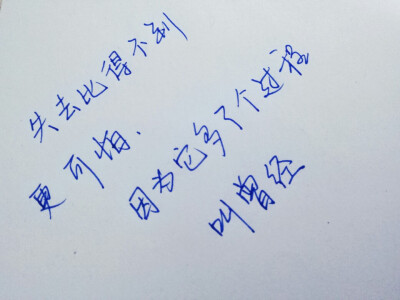 失去比得不到
更可怕.
因为它多了个过程
叫曾经